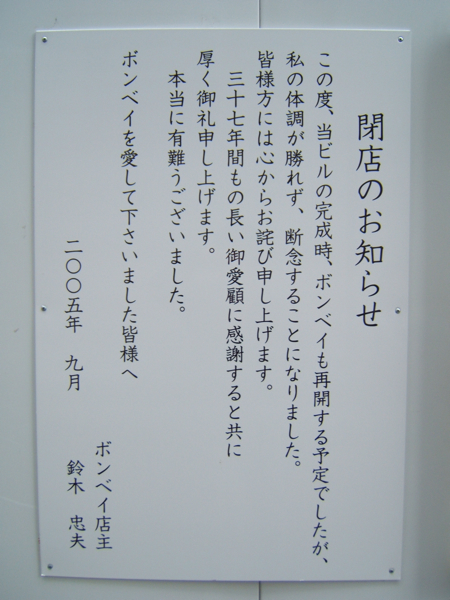 閉店のお知らせ
この度、当ビルの完成時、ボンベイも再開する予定でしたが、
私の体調が勝れず、断念することになりました。
皆様方には心からお詫び申し上げます。
三十七年間もの長い御愛顧に感謝すると共に
厚く御礼申し上げます。
本当に有難うございました。
ボンベイを愛して下さいました皆様へ
二〇〇五年 九月
ボンベイ店主
鈴木 忠夫